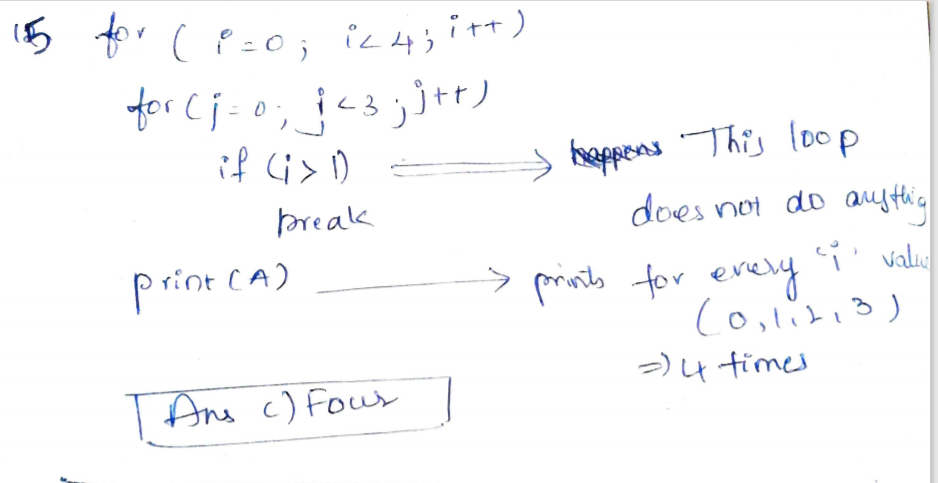 15 for ( i=0; i<4; i++)
for(j=0; j<3; j++)
if (i>1) ⟹ This loop
break does not do anythig
print(A) → prints for every 'i' value
(0,1,2,3)
⇒ 4 times
Ans c) Four